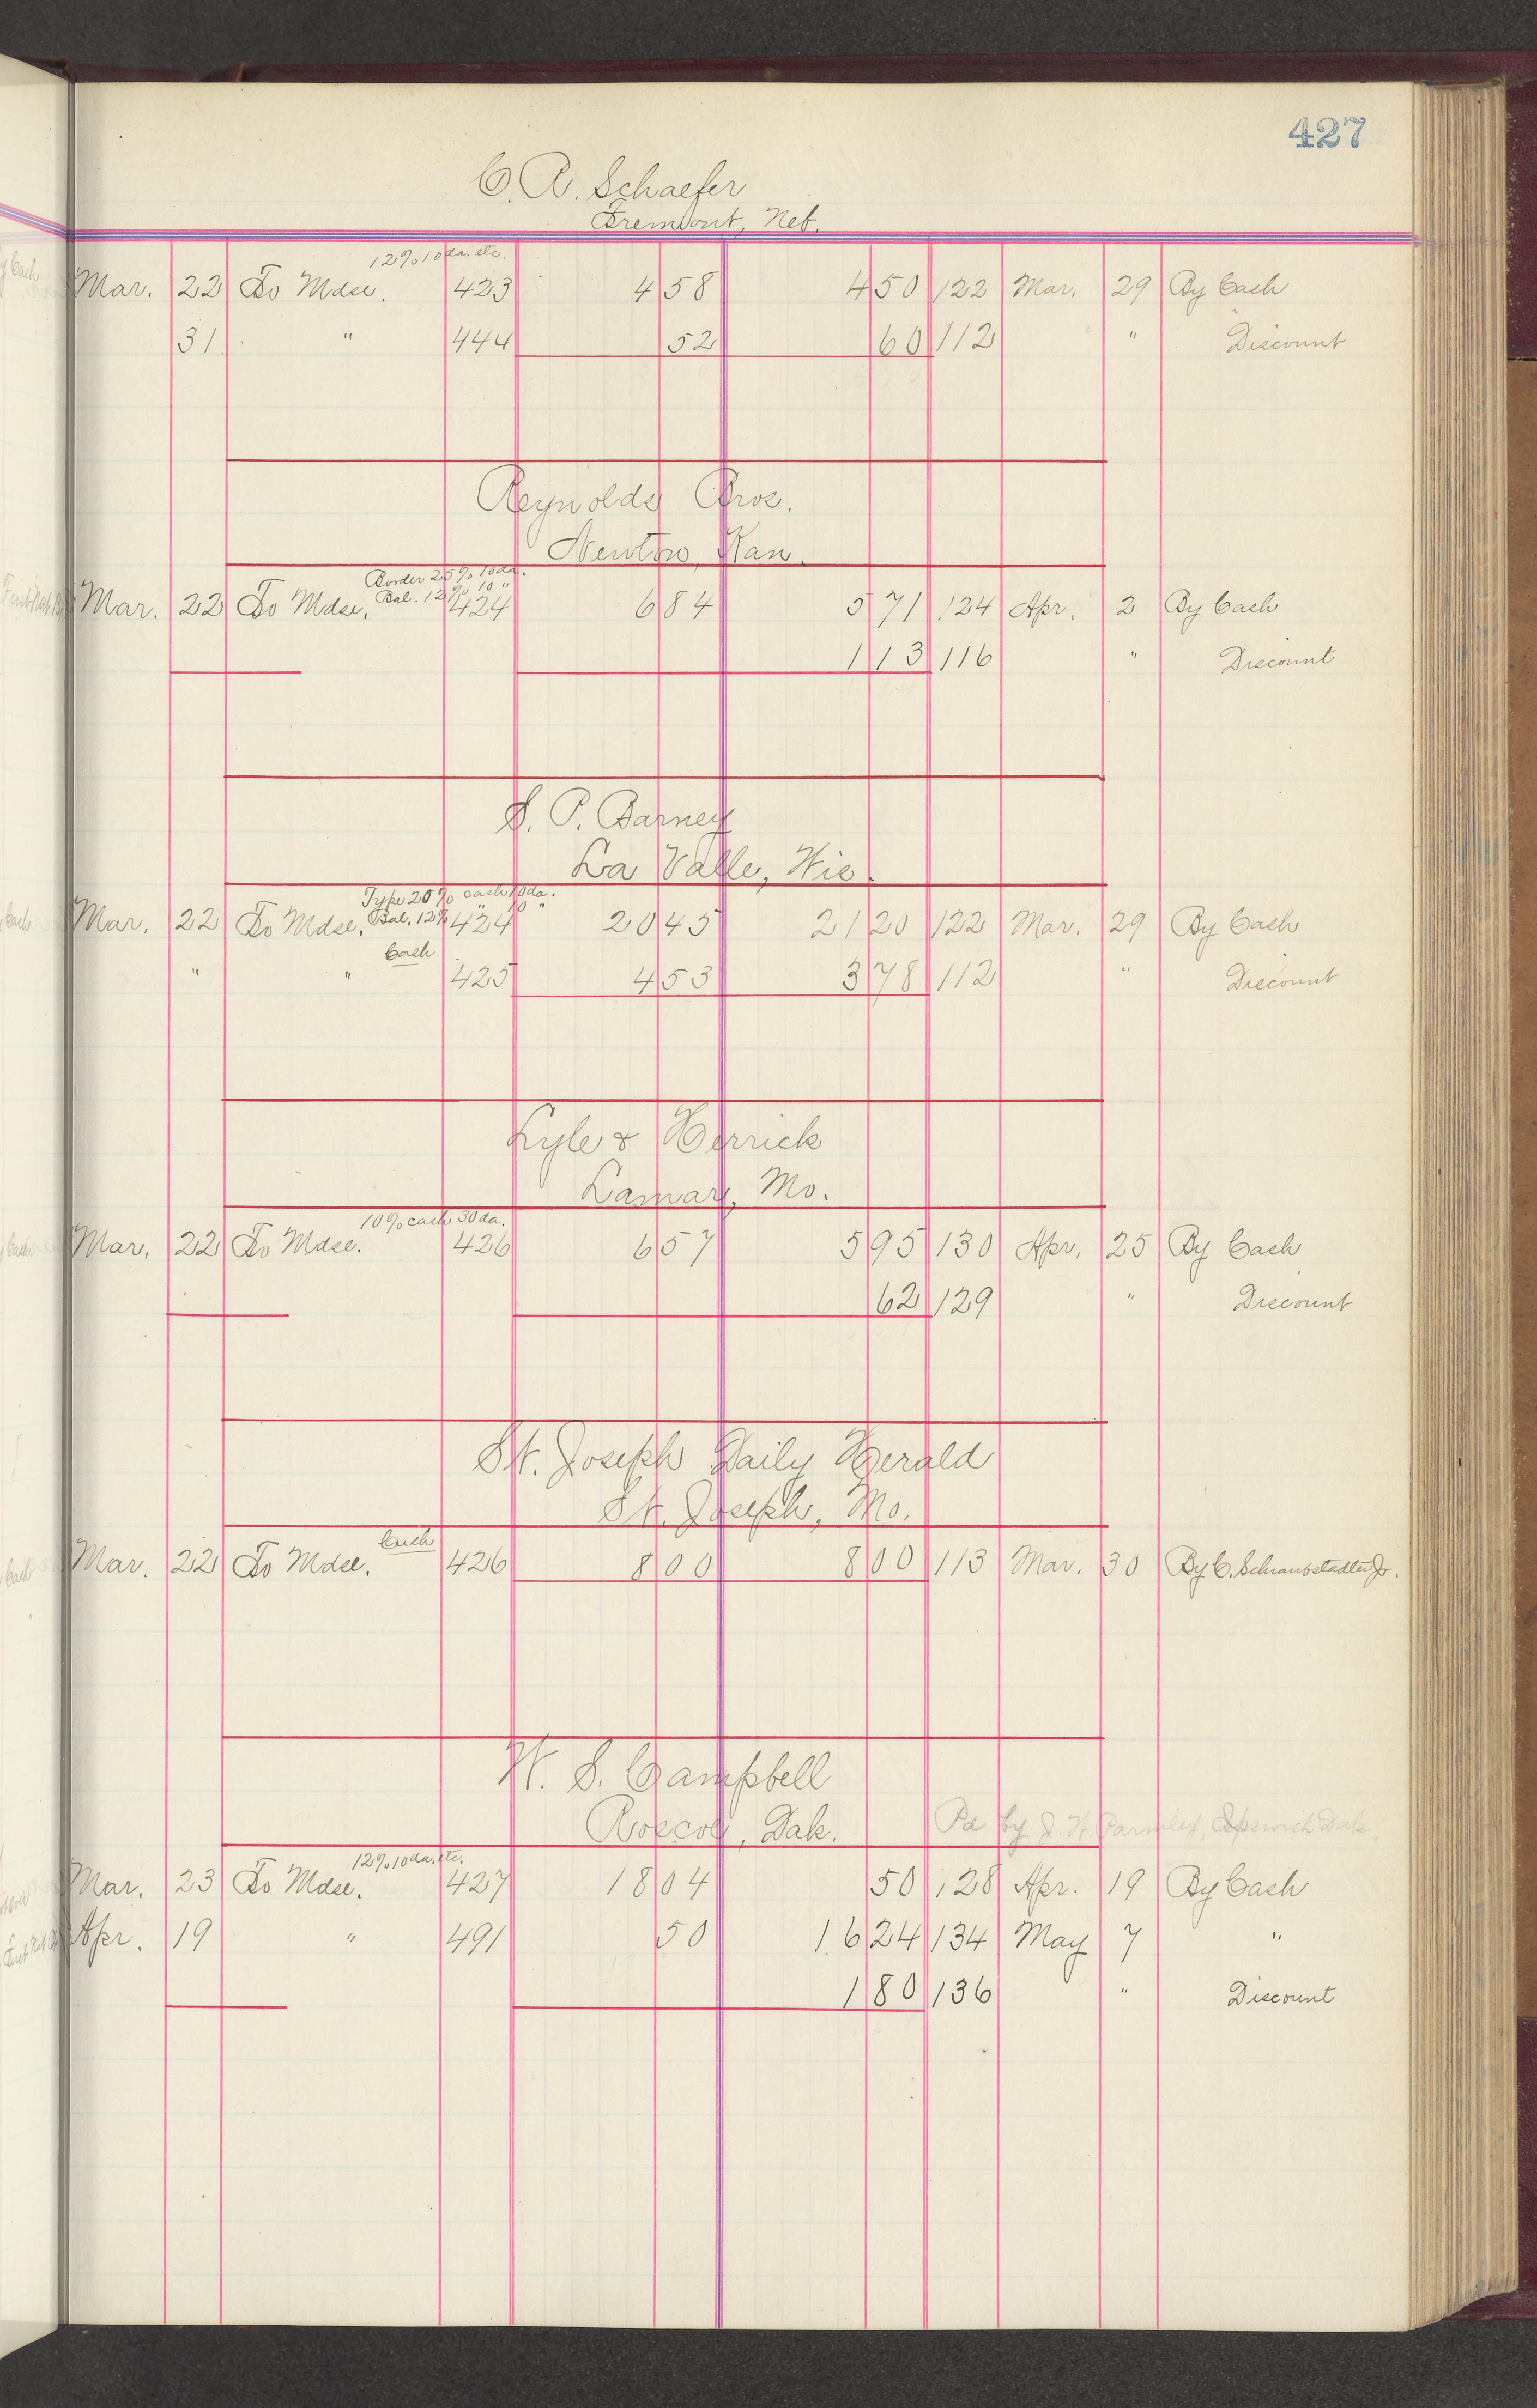 427
C. R. Schaefer
Fremont, Neb.
12% 10 da. etc.
Mar. 22 To Mdse. 423 4 58 4 50 122 Mar. 29 By Cash
31 " 444 52 60 112 " Discount
Reynolds Bros.
Newton, Kan.
Border 25% 10 da.
Bal. 12% 10 "
Mar. 22 To Mdse. 424 6 84 5 71 124 Apr. 2 By Cash
1 13 116 " Discount
S. P. Barney
La Valle, Wis.
Type 20% cash 10 da.
Bal. 12% " 10 "
Mar. 22 To Mdse. 424 20 45 21 20 122 Mar. 29 By Cash
Cash
" " 425 4 53 3 78 112 " Discount
Lyle & Herrick
Lamar, Mo.
10% cash 30 da.
Mar. 22 To Mdse. 426 6 57 5 95 130 Apr. 25 By Cash
62 129 " Discount
St. Joseph Daily Herald
St. Joseph, Mo.
Cash
Mar. 22 To Mdse. 426 8 00 8 00 113 Mar. 30 By C. Schraubstadter Jr.
W. S. Campbell
Roscoe, Dak. Pd by J. H. Parmley, Ipswich Dak.
12% 10 da. etc.
Mar. 23 To Mdse. 427 18 04 50 128 Apr. 19 By Cash
Apr. 19 " 491 50 16 24 134 May 7 "
1 80 136 " Discount